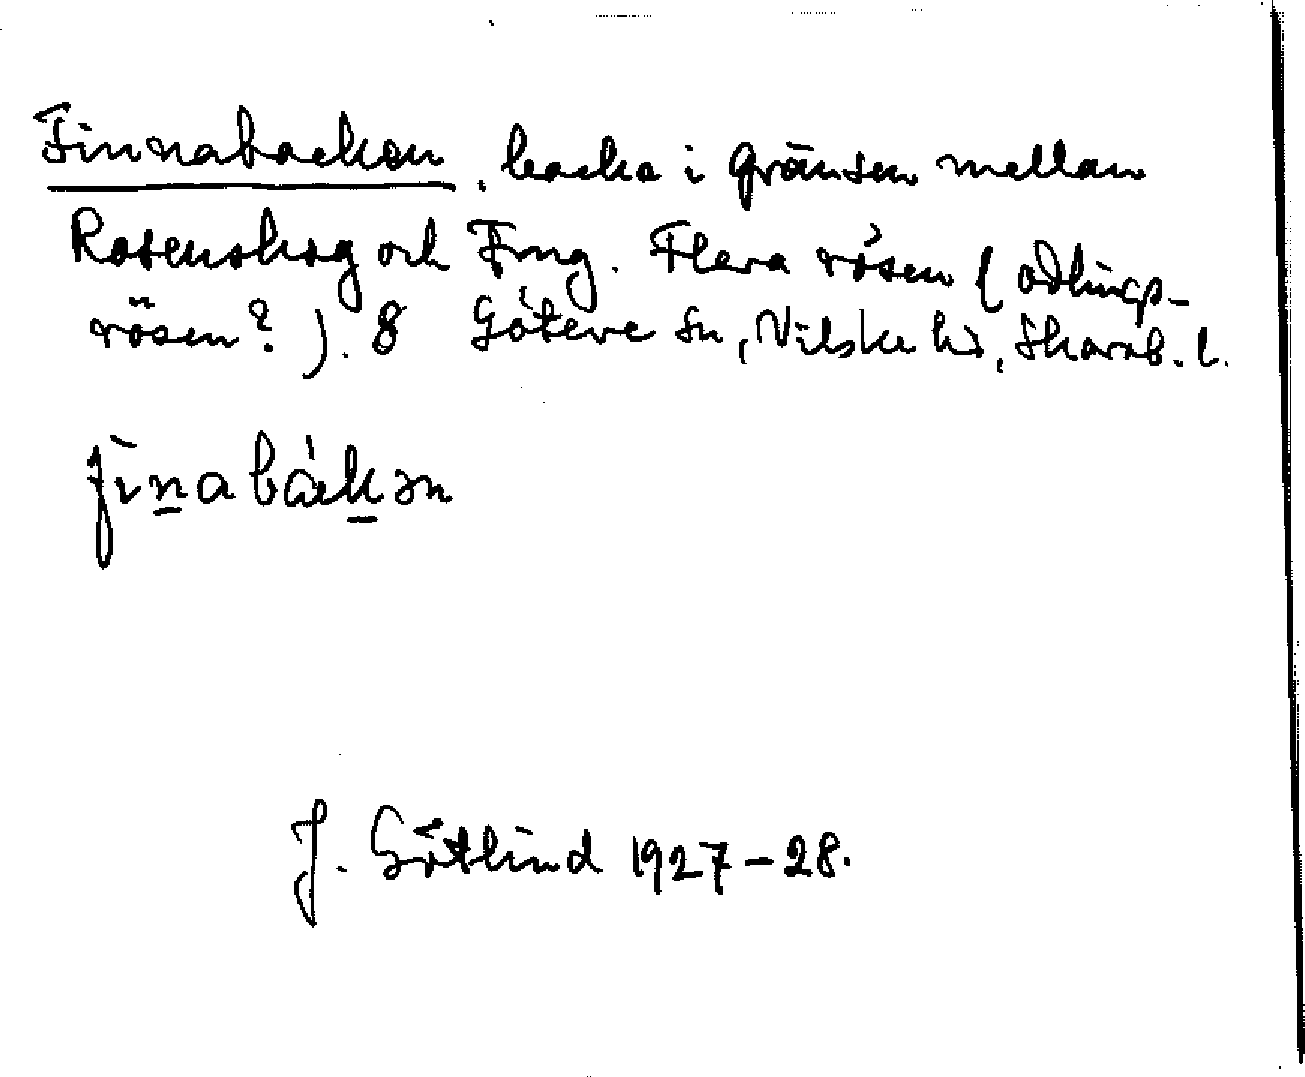 Finnabacken, backa i gränsen mellan
Rosenskog och Tmg. Flera rösen (odlings-
rösen?). 8 Göteve sn, Vilske hd, Skarab. l.
finabákən
J. Götlind 1927-28.